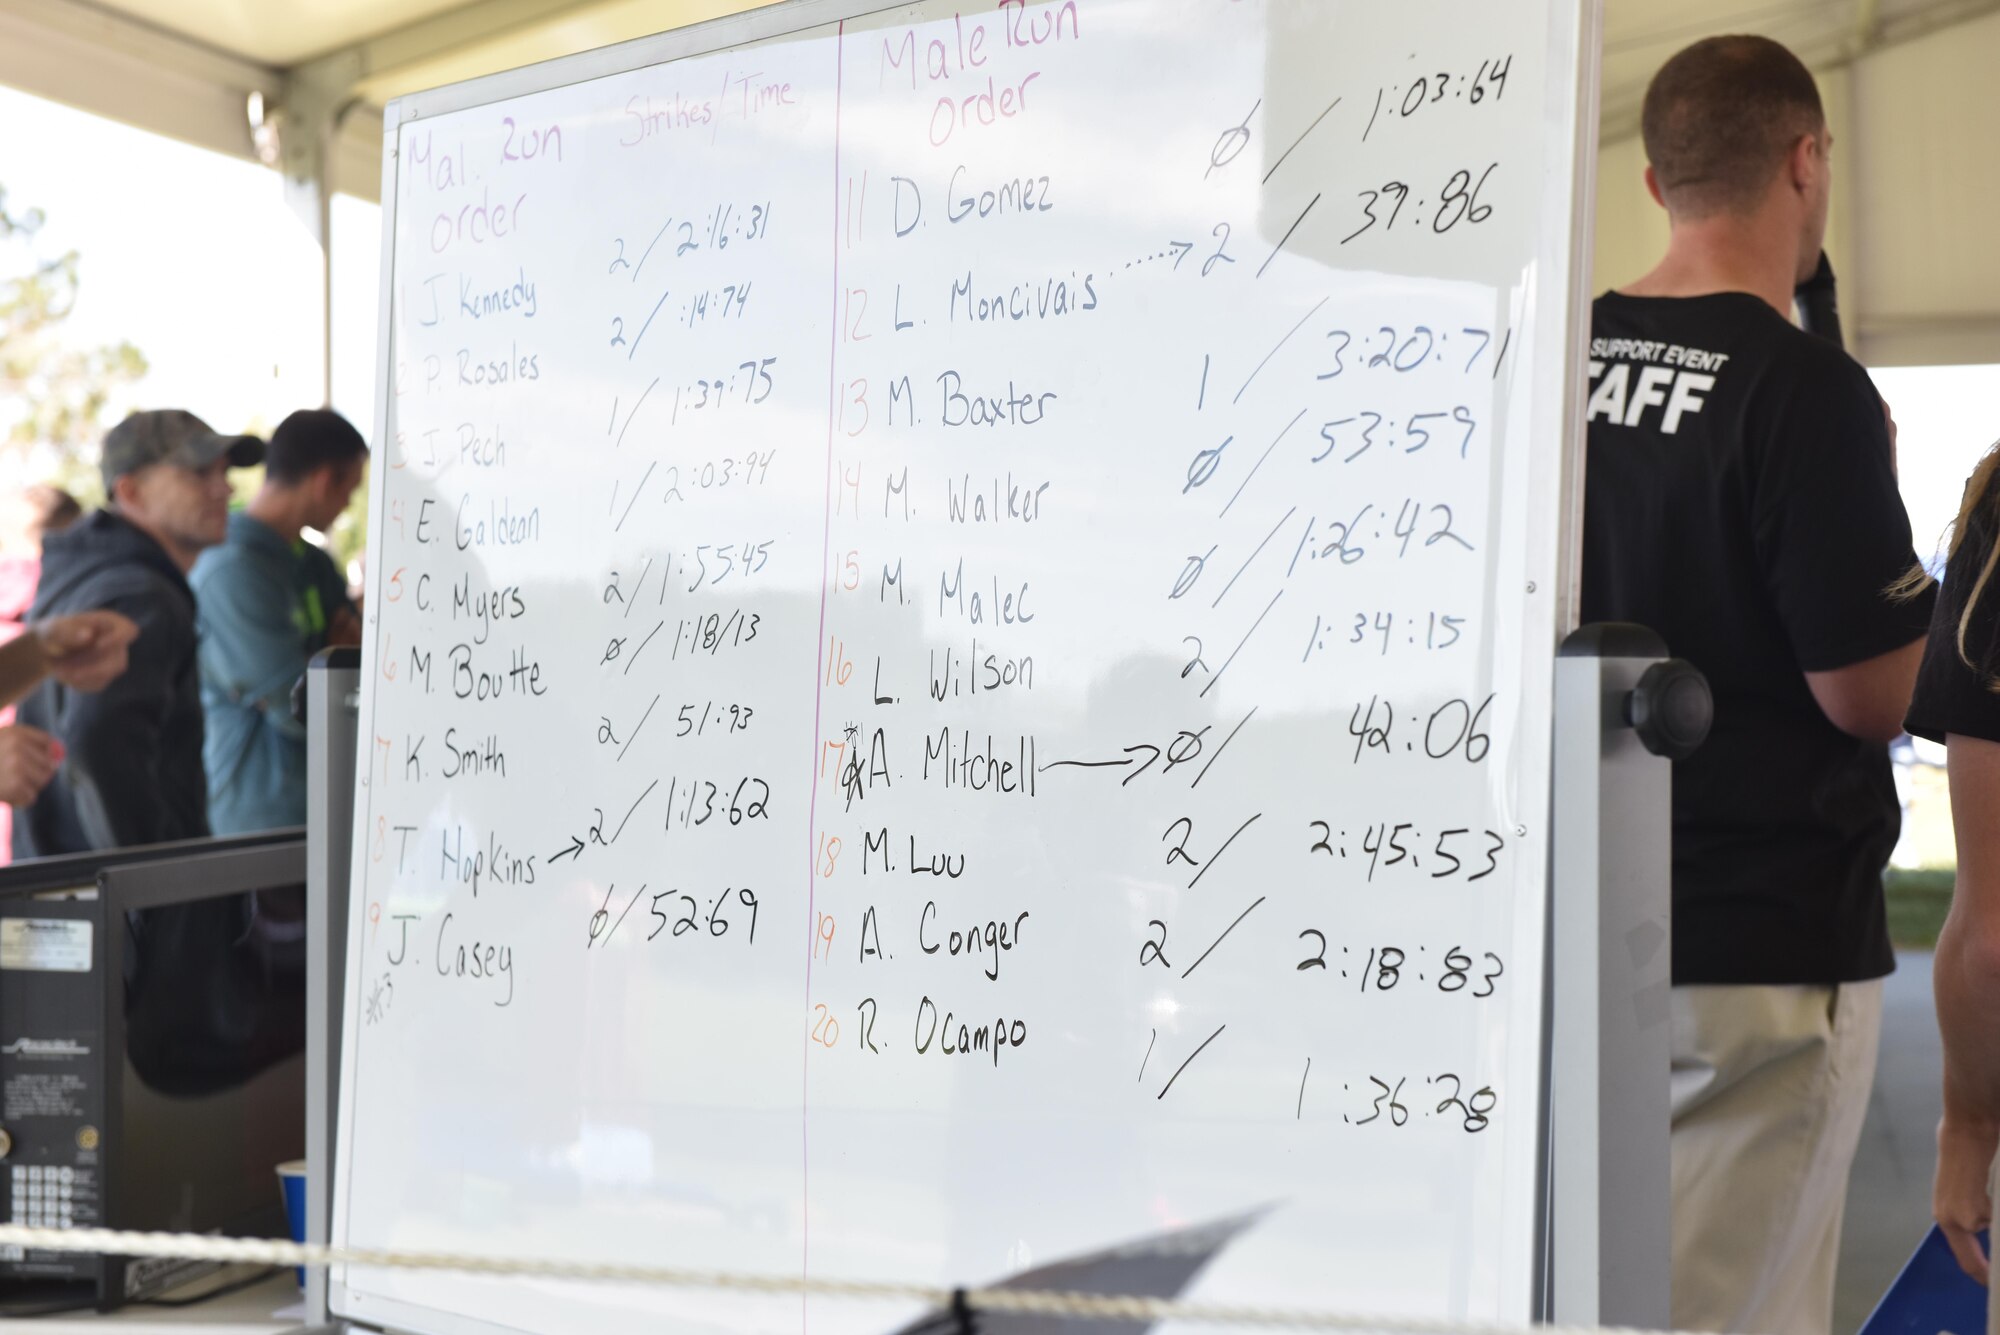 Mal. Run Strikes/Time
order
1 J. Kennedy 2/ 2:16:31
2 P. Rosales 2/ :14:74
3 J. Pech 1/ 1:39:75
4 E. Galdean 1/ 2:03:94
5 C. Myers 2/ 1:55:45
6 M. Boutte Ø/ 1:18/13
7 K. Smith 2/ 51:93
8 T. Hopkins → 2/ 1:13:62
9 J. Casey Ø/ 52:69
Male Run
order
11 D. Gomez Ø/ 1:03:64
12 L. Moncivais → 2/ 39:86
13 M. Baxter 1/ 3:20:71
14 M. Walker Ø/ 53:59
15 M. Malec Ø/ 1:26:42
16 L. Wilson 2/ 1:34:15
17 A. Mitchell → Ø/ 42:06
18 M. Luu 2/ 2:45:53
19 A. Conger 2/ 2:18:83
20 R. Ocampo 1/ 1:36:28
SUPPORT EVENT
TAFF